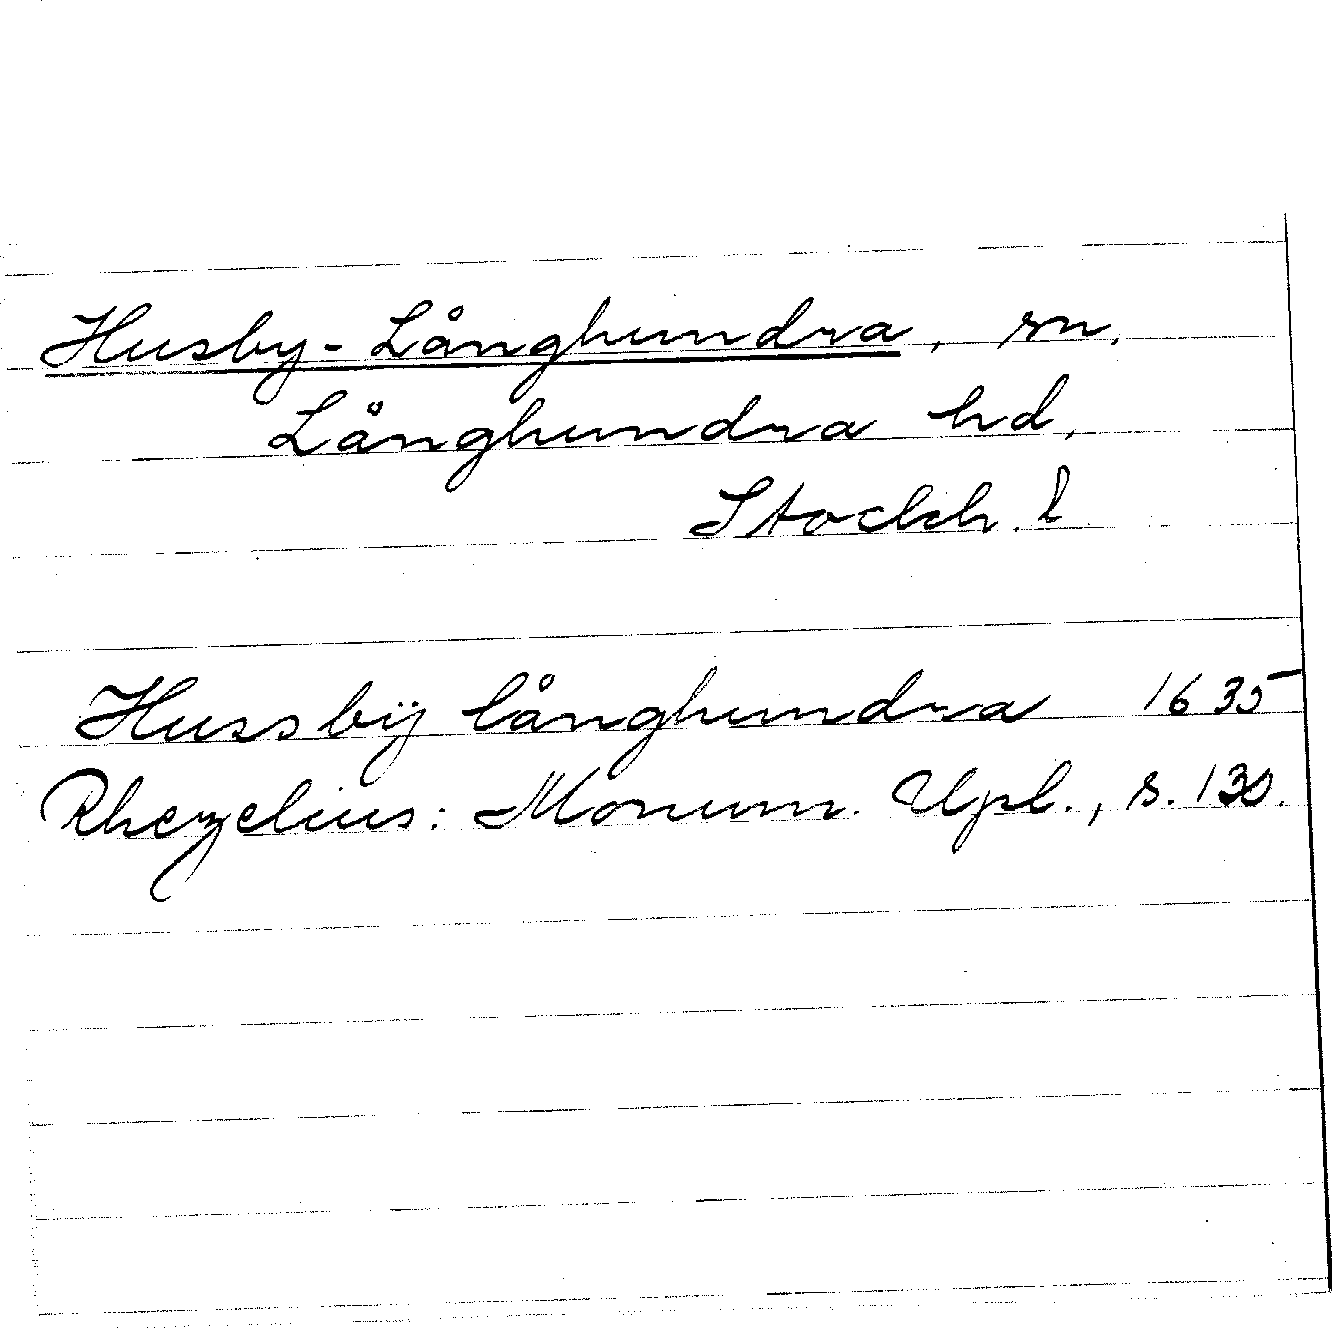 Husby-Långhundra, sn,
Långhundra hd,
Stockh. l
Hussbÿ långhundra 1635
Rhezelius: Monum. Upl., s. 130.